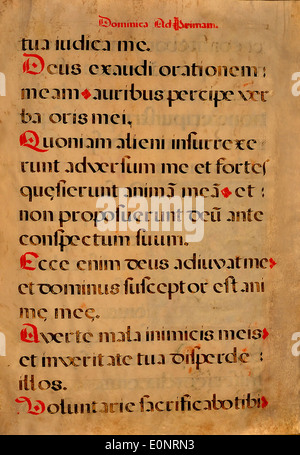 Dominica Ad Primam.
tua iudica me.
Deus exaudi orationem :
meam auribus percipe ver
ba oris mei.
Quoniam alieni insurrexe
runt adversum me et fortes
quęsierunt animā meā et :
non proposuerunt deū ante
conspectum suum.
Ecce enim deus adiuvat me
et dominus susceptor est ani
mę meę.
Averte mala inimicis meis
et in veritate tua disperde :
illos.
Voluntarie sacrificabo tibi
alamy
Image ID: E0NRN3
www.alamy.com